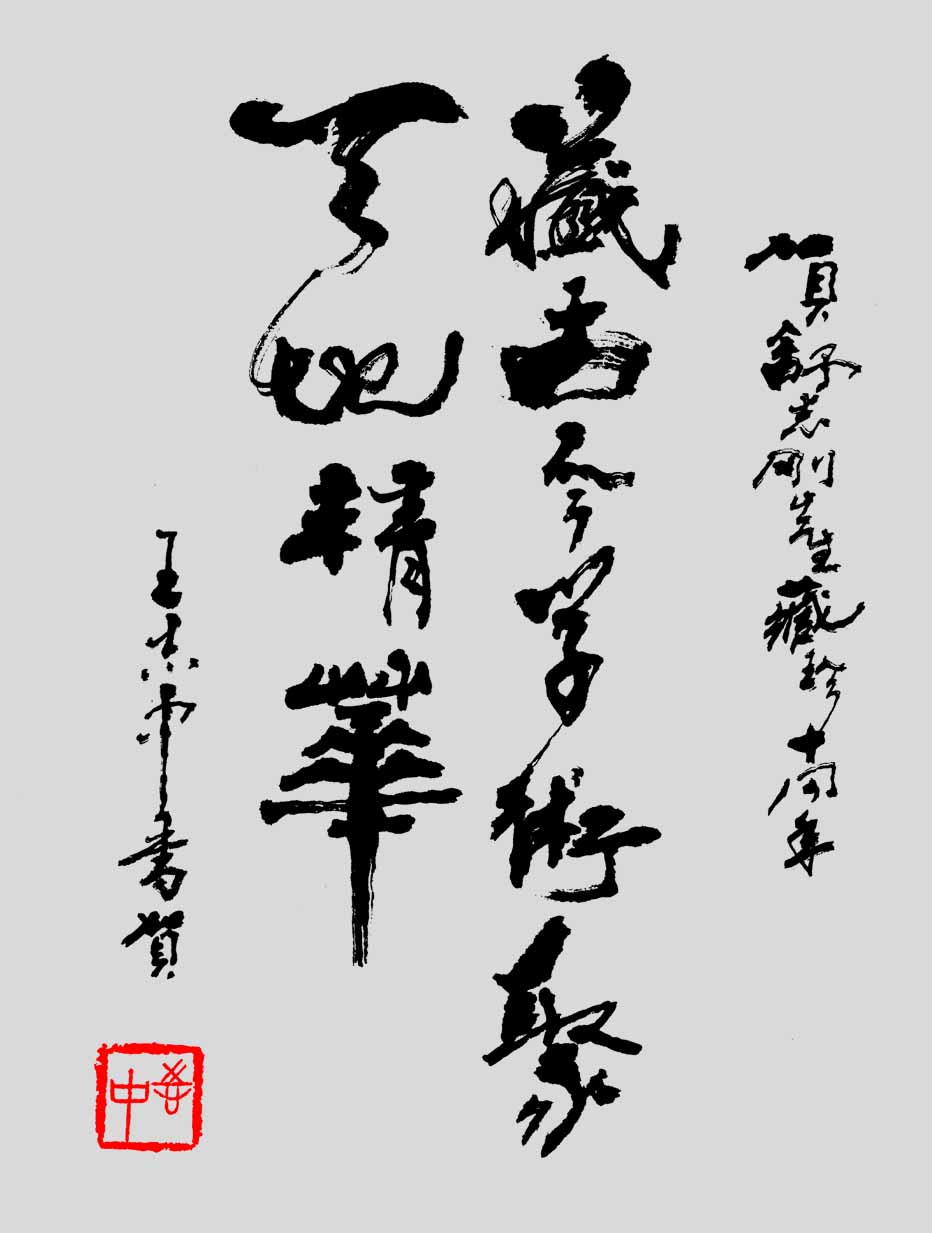 賀舒志剛先生藏珍十周年
藏古今學術聚
天地精華
王志中書賀
志中